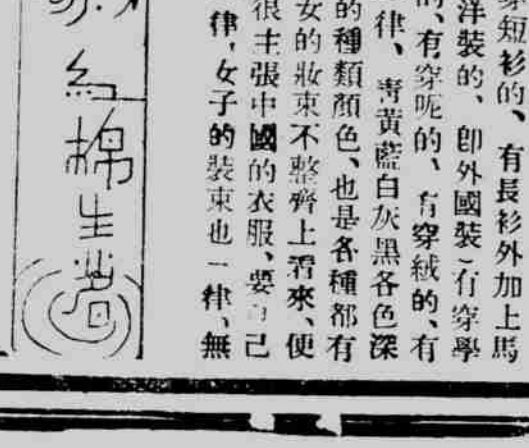 穿短衫的、有長衫外加上馬
洋裝的、卽外國裝)有穿學
的、有穿呢的、有穿絨的、有
律、靑黃藍白灰黑各色深
的種類顏色、也是各種都有
女的妝束不整齊上看來、便
很主張中國的衣服、要自己
律、女子的裝束也一律、無
紅棉生